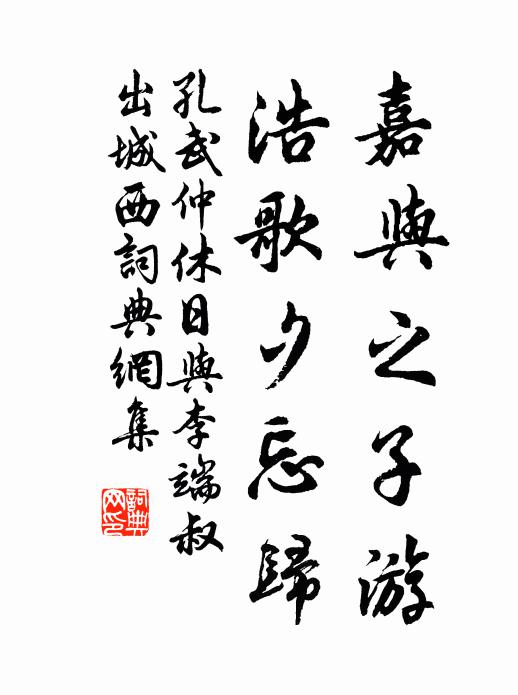 嘉與之子游
浩歌夕忘歸
孔武仲休日與李端叔
出城西詞典網集
詞典
网印